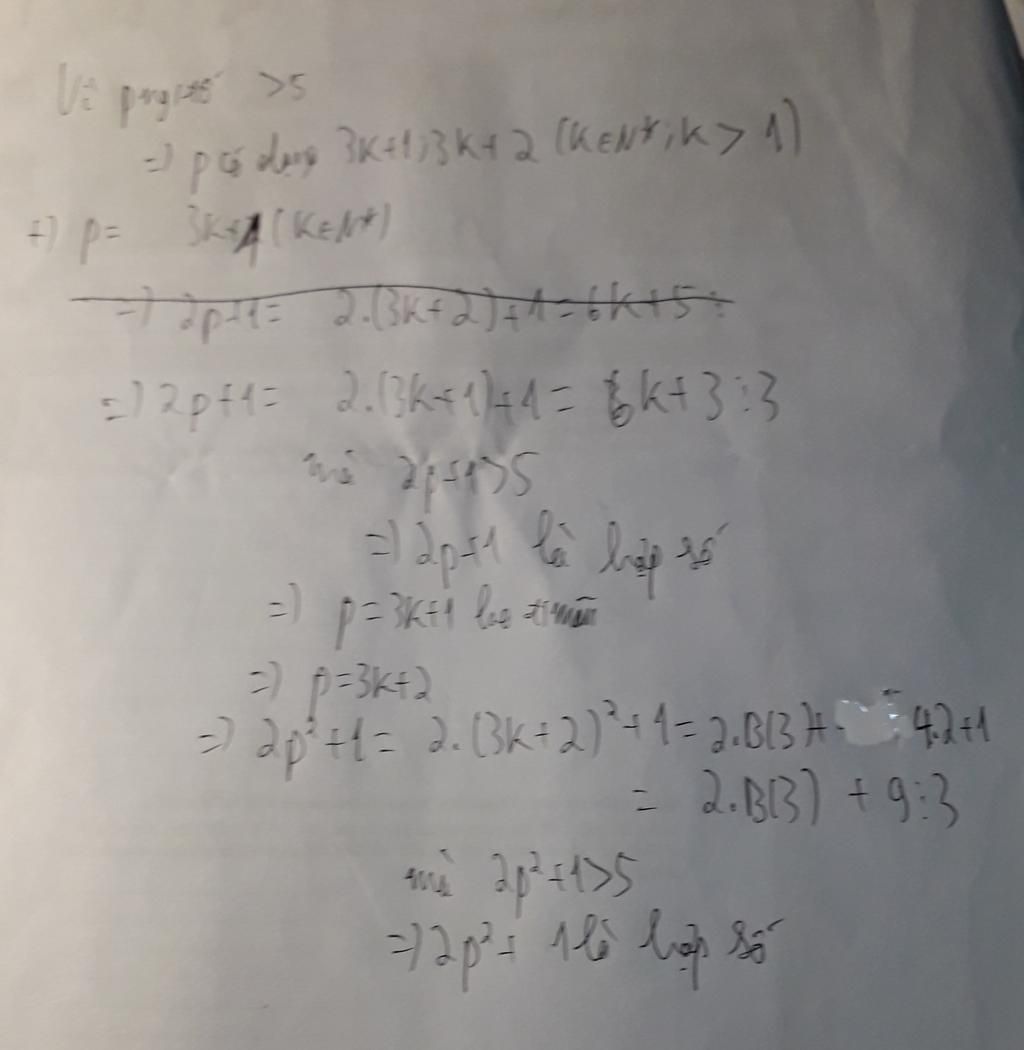 Vì p ngtố >5
=) p có dạng 3k+1;3k+2 (k∈N*;k>1)
+) p= 3k+1 (k∈N*)
=) 2p+1= 2.(3k+2)+1=6k+5⋮
=) 2p+1= 2.(3k+1)+1= 6k+3⋮3
mà 2p+1>5
=) 2p+1 là hợp số
=) p=3k+1
=) p=3k+2
=) 2p²+1= 2.(3k+2)²+1=2.B(3)+ 4.2+1
= 2.B(3) + 9⋮3
mà 2p²+1>5
=) 2p²+ 1 là hợp số